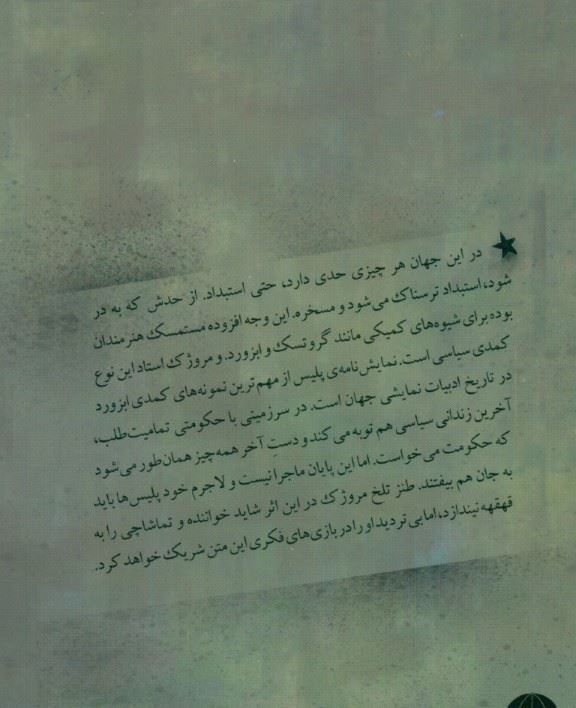 در این جهان هر چیزی حدی دارد، حتی استبداد. از حدش که به در
شود، استبداد ترسناک می‌شود و مسخره. این وجه افزوده مستمسک هنرمندان
بوده برای شیوه‌های کمیکی مانند گروتسک و ابزورد. و مروژک استاد این نوع
کمدی سیاسی است. نمایش‌نامه‌ی پلیس از مهم‌ترین نمونه‌های کمدی ابزورد
در تاریخ ادبیات نمایشی جهان است. در سرزمینی با حکومتی تمامیت‌طلب،
آخرین زندانی سیاسی هم توبه می‌کند و دستِ آخر همه‌چیز همان‌طور می‌شود
که حکومت می‌خواست. اما این پایان ماجرا نیست و لاجرم خود پلیس‌ها باید
به جان هم بیفتند. طنز تلخ مروژک در این اثر شاید خواننده و تماشاچی را به
قهقهه نیندازد، اما بی‌تردید او را در بازی‌های فکری این متن شریک خواهد کرد.